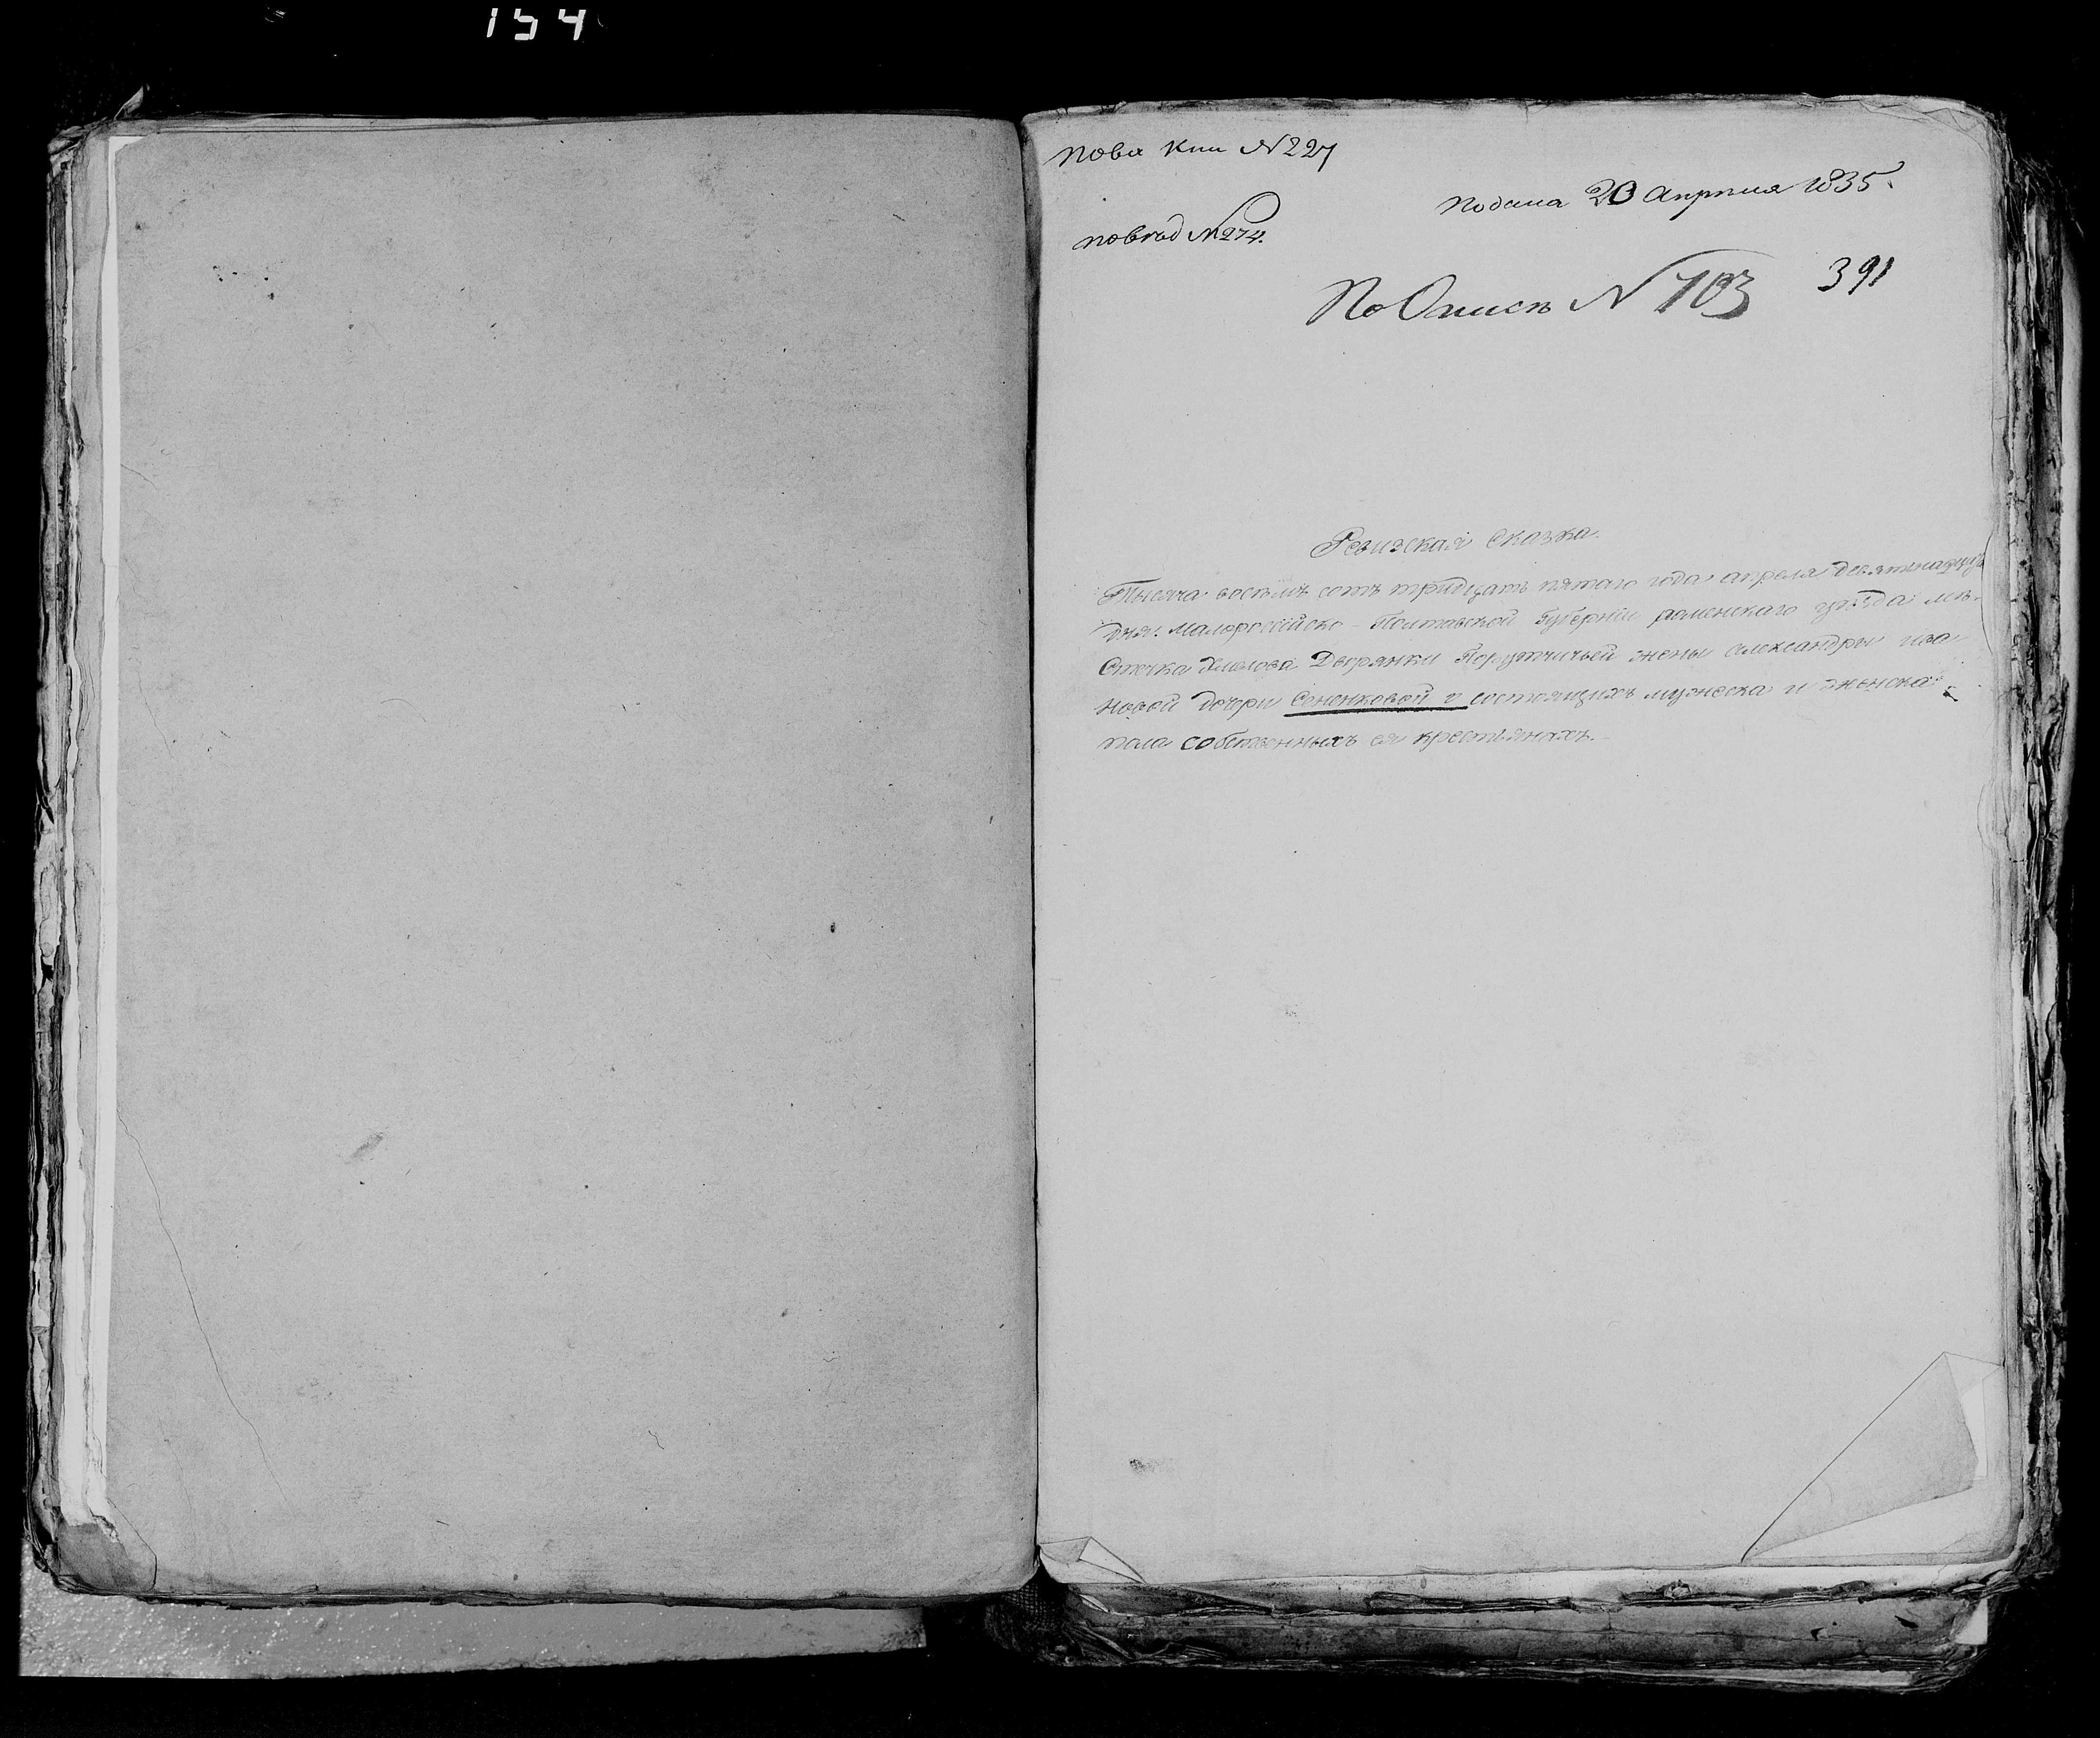 154
по ви кни №227
подана 20 апреля 1835.
по вход №274.
По Описи №103 391
Ревизская сказка.
Тысяча восемь сотъ тридцать пятаго года апреля девятнадцать
дня. Малороссійско-Полтавской Губерніи роменскаго уѣзда мѣ-
стечка Хмелова Дворянки Порутчичьей жены александры ива
новой дочери Сененковой о состоящихъ мужеска и женска
пола собственныхъ ея крестьянахъ.